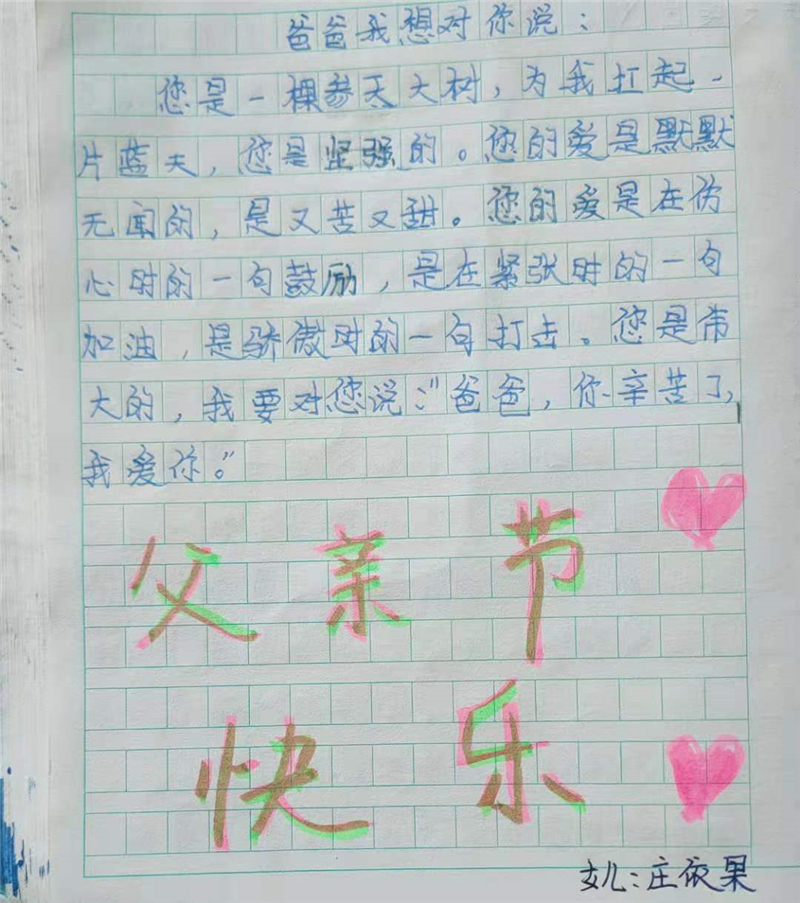 爸爸我想对你说：
您是一棵参天大树，为我扛起一
片蓝天，您是坚强的。您的爱是默默
无闻的，是又苦又甜。您的爱是在伤
心时的一句鼓励，是在紧张时的一句
加油，是骄傲时的一句打击。您是伟
大的，我要对您说：“爸爸，你辛苦了，
我爱你。”
父亲节
快乐
女儿：庄依果